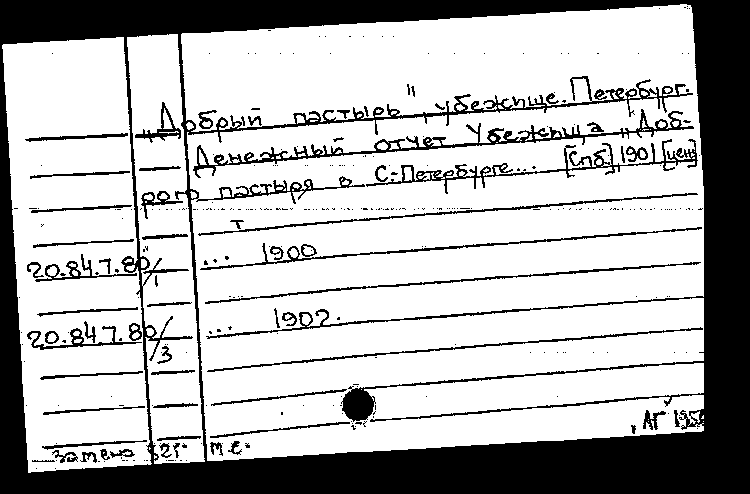 „Добрый пастырь", убежище. Петербург.
Денежный отчет Убежища „Доб-
рого пастыря в С.-Петербурге... [Спб.], 1901 [ценз]
т
20.84.7.80/1 ... 1900
20.84.7.80/3 ... 1902.
АГ
замена т.е.